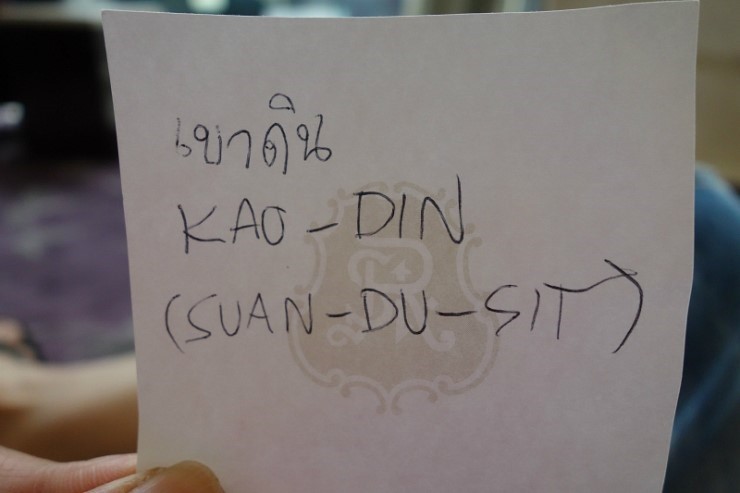 เขาดิน
KAO-DIN
(SUAN-DU-SIT)